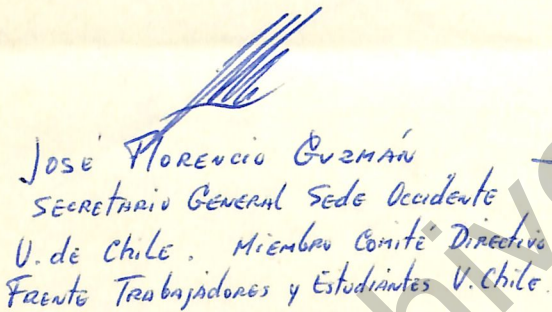 José Florencio Guzmán
Secretario General Sede Occidente
U. de Chile. Miembro Comité Directivo
Frente Trabajadores y Estudiantes U. Chile.